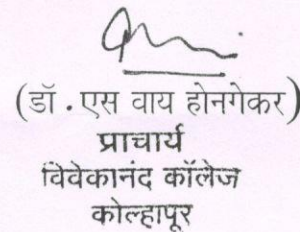 (डॉ.एस वाय होनगेकर)
प्राचार्य
विवेकानंद कॉलेज
कोल्हापूर